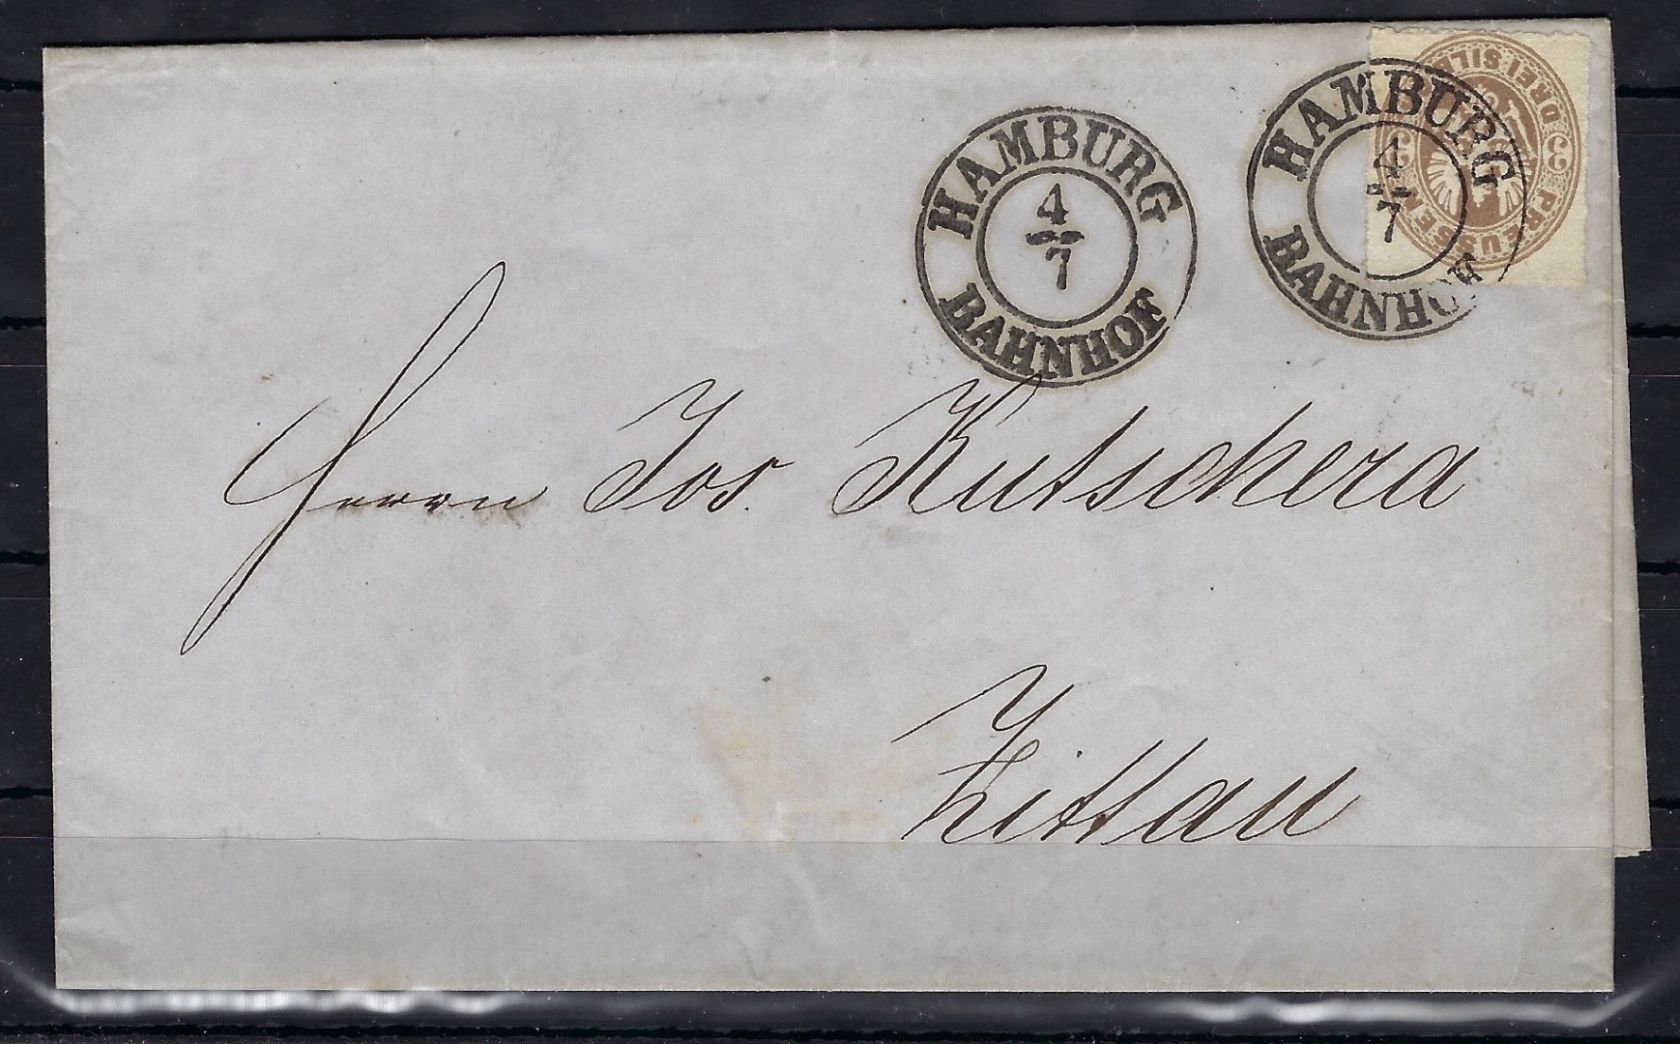 HAMBURG
4
7
BAHNHOF
HAMBURG
4
7
BAHNHOF
PREUSSEN 3 DREI SILB
3
Herrn Jos. Kutschera
Zittau